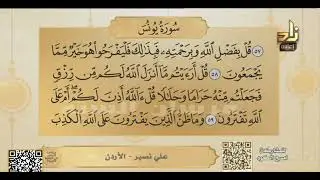 سُورَةُ يُونُسَ
٥٧ قُلْ بِفَضْلِ ٱللَّهِ وَبِرَحْمَتِهِۦ فَبِذَٰلِكَ فَلْيَفْرَحُوا۟ هُوَ خَيْرٌ مِّمَّا
يَجْمَعُونَ ٥٨ قُلْ أَرَءَيْتُم مَّآ أَنزَلَ ٱللَّهُ لَكُم مِّن رِّزْقٍ
فَجَعَلْتُم مِّنْهُ حَرَامًا وَحَلَٰلًا قُلْ ءَآللَّهُ أَذِنَ لَكُمْ أَمْ عَلَى
ٱللَّهِ تَفْتَرُونَ ٥٩ وَمَا ظَنُّ ٱلَّذِينَ يَفْتَرُونَ عَلَى ٱللَّهِ ٱلْكَذِبَ
علي نسير - الأردن